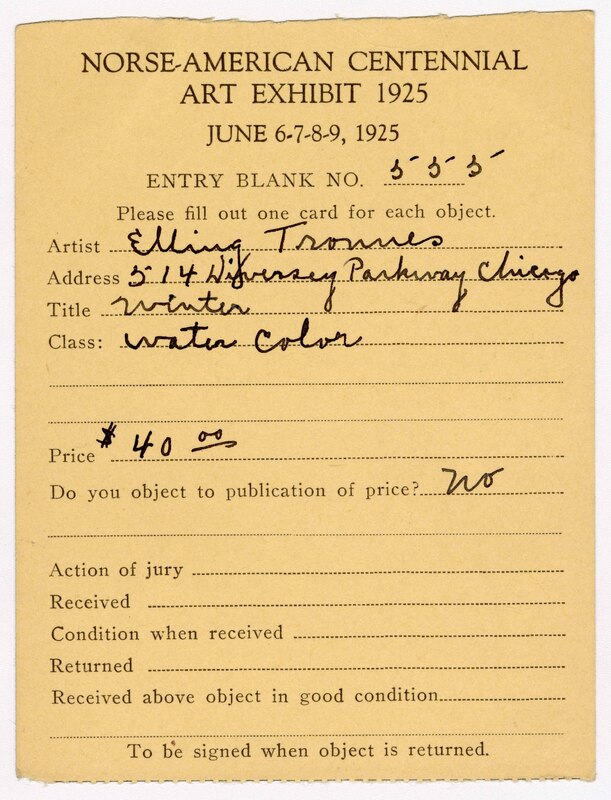 NORSE-AMERICAN CENTENNIAL
ART EXHIBIT 1925
JUNE 6-7-8-9, 1925
ENTRY BLANK NO. 555
Please fill out one card for each object.
Artist Elling Tronnes
Address 514 Diversey Parkway Chicago
Title Winter
Class: Water Color
Price $ 40 00
Do you object to publication of price? No
Action of jury
Received
Condition when received
Returned
Received above object in good condition
To be signed when object is returned.